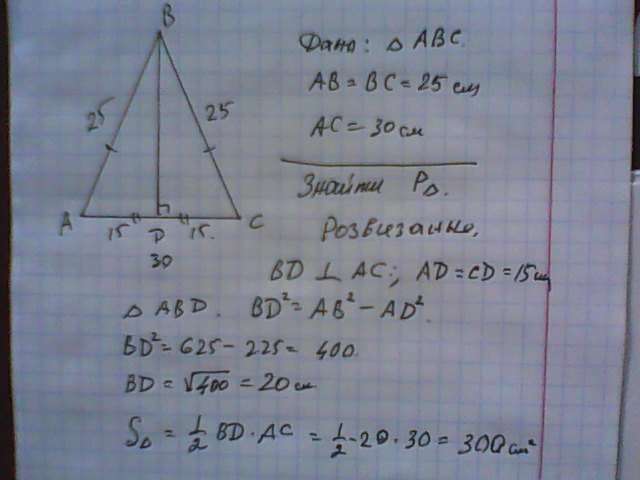 B
25
25
A
15
D
15.
C
30
Дано: △ ABC.
AB = BC = 25 см
AC = 30 см
Знайти P△.
Розвизанно,
BD ⊥ AC; AD = CD = 15 см
△ ABD. BD² = AB² − AD².
BD² = 625 − 225 = 400.
BD = √400 = 20 см
S△ = 1/2 BD · AC = 1/2 · 20 · 30 = 300 см²